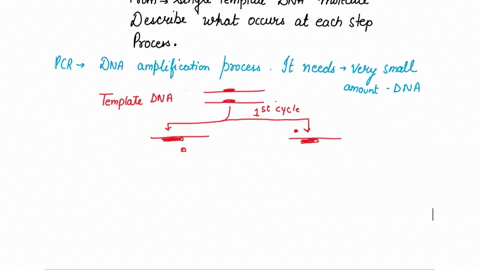 from → single template DNA molecule
Describe what occurs at each step
Process.
PCR → DNA amplification process. It needs → very small
amount - DNA
Template DNA
1st cycle